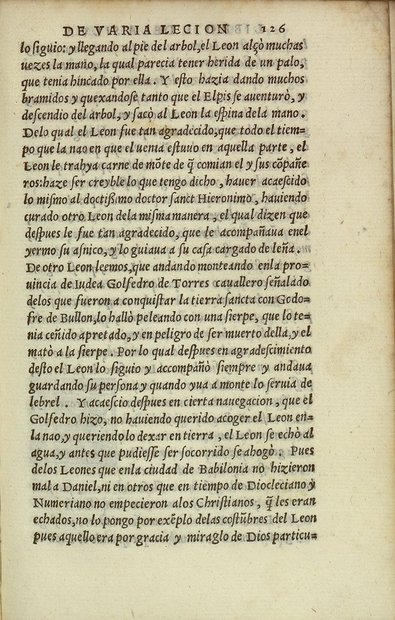 DE VARIA LECION 126
lo siguio: y llegando al pie del arbol, el Leon alçò muchas
uezes la mano, la qual parecia tener herida de un palo,
que tenia hincado por ella. Y esto hazia dando muchos
bramidos y quexandose tanto que el Elpis se auenturò, y
descendio del arbol, y sacò al Leon la espina dela mano.
Delo qual el Leon fue tan agradecido, que todo el tiem-
po que la nao en que el uenia estuuo en aquella parte, el
Leon le trahya carne de mõte de q̃ comian el y sus cõpañe
ros: haze ser creyble lo que tengo dicho, hauer acaescido
lo mismo al doctissimo doctor sanct Hieronimo, hauiendo
curado otro Leon dela misma manera, el qual dizen que
despues le fue tan agradecido, que le acompañaua enel
yermo su asnico, y lo guiaua a su casa cargado de leña.
De otro Leon leemos, que andando monteando enla pro-
uincia de Iudea Golfedro de Torres cauallero señalado
delos que fueron a conquistar la tierra sancta con Godo-
fre de Bullon, lo hallò peleando con una sierpe, que lo te-
nia ceñido apretado, y en peligro de ser muerto della, y el
matò a la sierpe. Por lo qual despues en agradescimiento
desto el Leon lo siguio y accompañò siempre y andaua
guardando su persona y quando yua a monte lo seruia de
lebrel. Y acaescio despues en cierta nauegacion, que el
Golfedro hizo, no hauiendo querido acoger el Leon en-
la nao, y queriendo lo dexar en tierra, el Leon se echò al
agua, y antes que pudiesse ser socorrido se ahogò. Pues
delos Leones que enla ciudad de Babilonia no hizieron
mal a Daniel, ni en otros que en tiempo de Diocleciano y
Numeriano no empecieron alos Christianos, q̃ les eran
echados, no lo pongo por exẽplo delas costũbres del Leon
pues aquello era por gracia y miraglo de Dios particu-